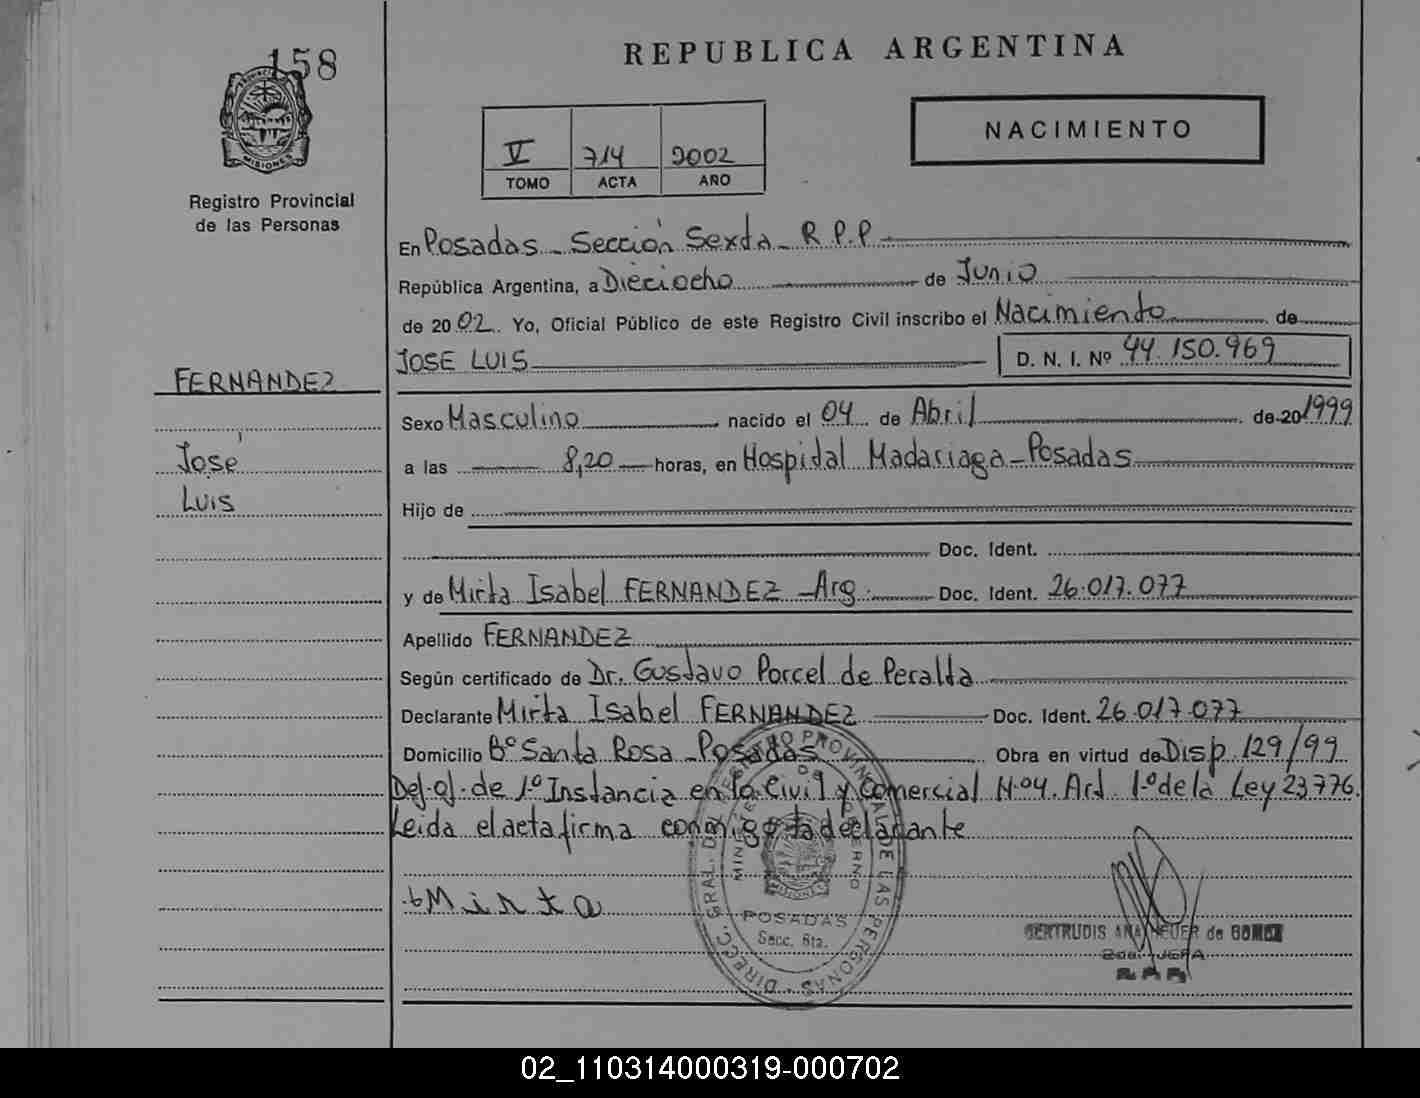 158
PROVINCIA DE
MISIONES
Registro Provincial
de las Personas
FERNANDEZ
José
Luis
REPUBLICA ARGENTINA
V 714 2002
TOMO ACTA AÑO
NACIMIENTO
En Posadas - Sección Sexta - R P.P
República Argentina, a Dieciocho de Junio
de 2002. Yo, Oficial Público de este Registro Civil inscribo el Nacimiento de
JOSE LUIS D. N. I. Nº 44.150.969
Sexo Masculino nacido el 04 de Abril de 20 1999
a las 8,20 horas, en Hospital Madariaga - Posadas
Hijo de
Doc. Ident.
y de Mirta Isabel FERNANDEZ - Arg. Doc. Ident. 26.017.077
Apellido FERNANDEZ
Según certificado de Dr. Gustavo Porcel de Peralta
Declarante Mirta Isabel FERNANDEZ Doc. Ident. 26.017.077
Domicilio Bº Santa Rosa - Posadas Obra en virtud de Disp. 129/99
Def. of. de 1º Instancia en lo Civil y Comercial N.º4. Art. 1º de la Ley 23776.
Leida el acta firma conmigo la declarante
Mirta
DIRECC. GRAL. DEL REGISTRO PROVINCIAL DE LAS PERSONAS
MISIONES
POSADAS
Secc. 6ta.
GERTRUDIS ANA de
JEFA
02_110314000319-000702